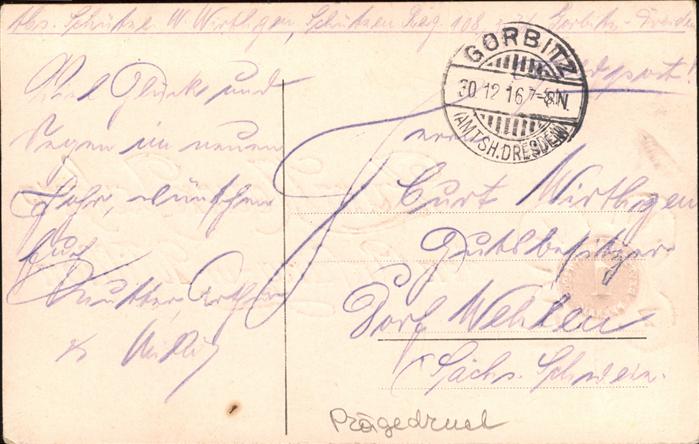 Abs. Schütze W. Wirthgen, Schützen Reg. 108 Gorbitz-Dresden
Feldpost!
GORBITZ
30 12 16 7-8N.
(AMTSH. DRESDEN)
Viel Glück und
Segen im neuen
Jahr, wünschen
Euch
Mutter, Arthur
u. Willy
Herrn
Curt Wirthgen
Gutsbesitzer
Dorf Wehlen
Sächs. Schweiz.
Prägedruck